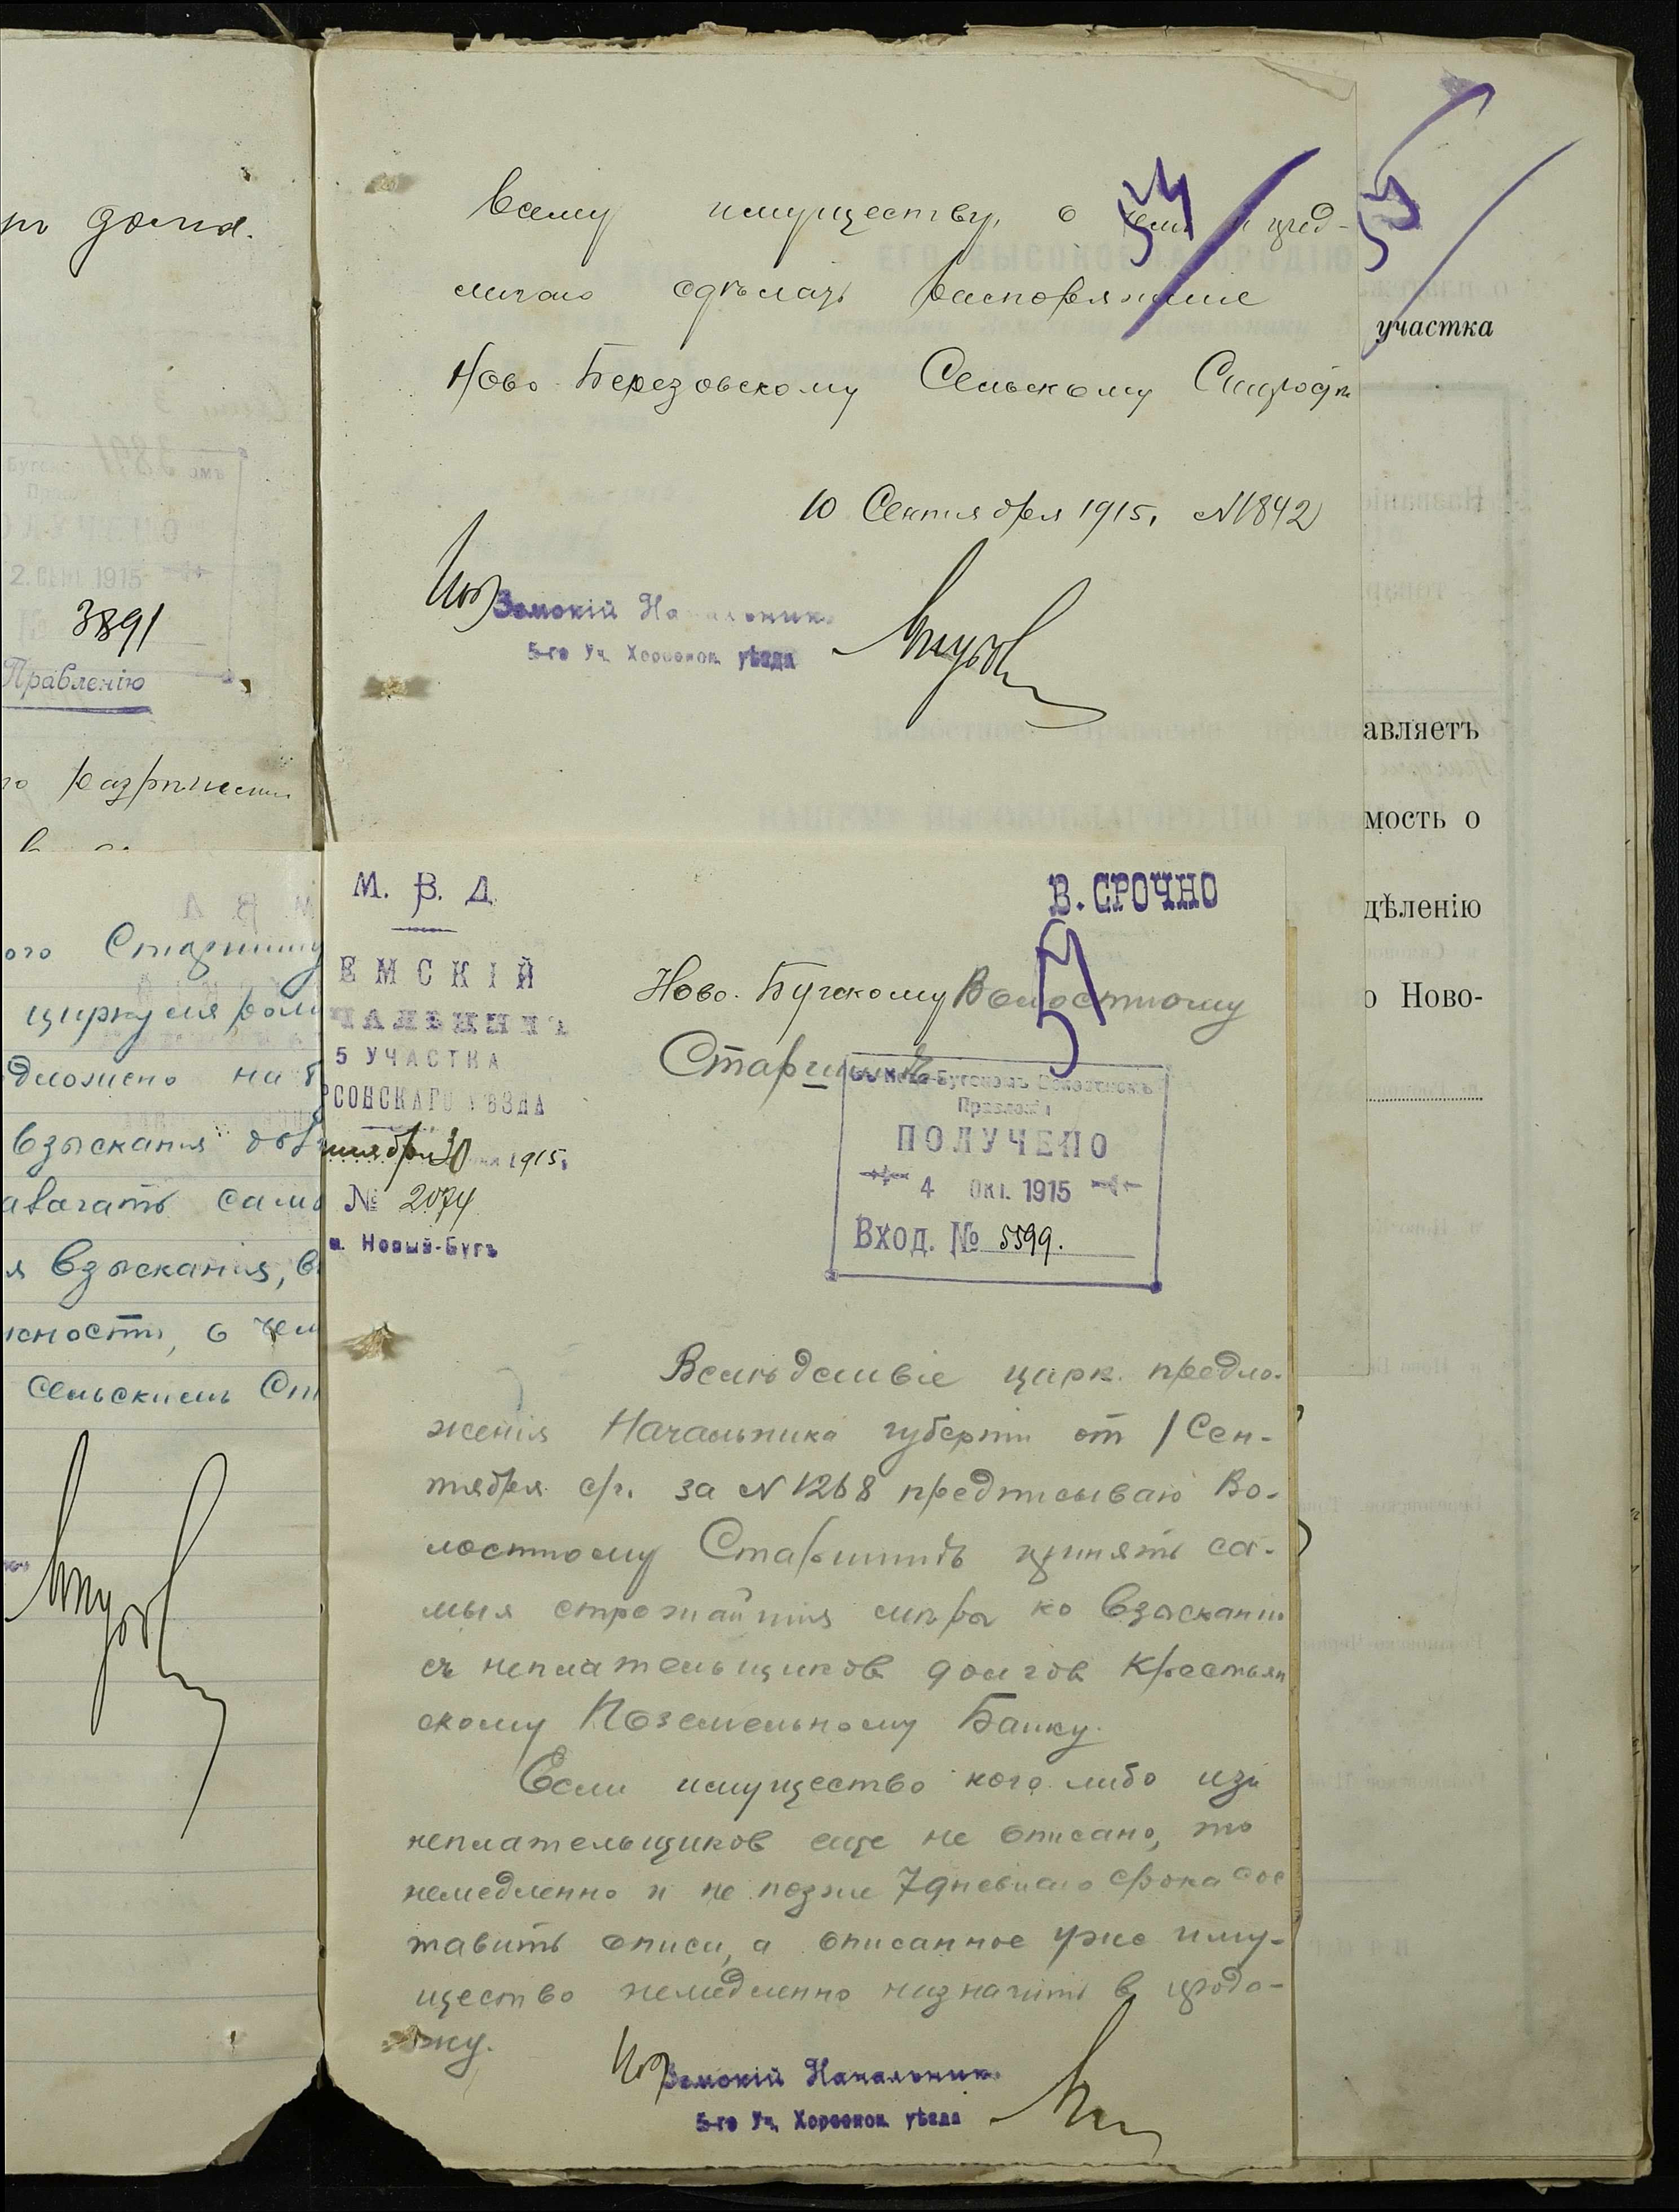 ъ дома.
3891
Правленію
всему имуществу, о чемъ и пред-
лагаю сдѣлать распоряженіе
Ново-Березовскому Сельскому Старостѣ
10 Сентября 1915, № 1842
Земскій Начальник
5-го Уч. Херсонск. уѣзда
54
54
участка
авляетъ
мость о
дѣленію
о Ново-
ого Старшину
циркуляром
дложено на
взысканія
сам
я взысканія, в
ности, о чем
Сельским Ст
М. В. Д.
ЕМСКІЙ
ЧАЛЬНИКЪ
5 УЧАСТКА
РСОНСКАГО УѢЗДА
тября 30 дня 1915.
№ 2074
м. Новый-Бугъ
В. СРОЧНО
57
Ново-Бугскому Волостному
Старшинѣ
Въ Ново-Бугскомъ Волостномъ
Правленіи
ПОЛУЧЕНО
4 ОКТ. 1915
Вход. № 5599.
Вслѣдствіе цирк. предло-
женія Начальника губерніи от 1 Сен-
тября с/г. за № 1268 предписываю Во-
лостному Старшинѣ принять са-
мыя строжайшія мѣры ко взысканію
съ неплательщиков долгов Крестьян
скому Поземельному Банку.
Если имущество кого либо изъ
неплательщиков еще не описано, то
немедленно и не позже 7 дневнаго срока сос
тавить описи, а описанное уже иму-
щество немедленно назначить в прода-
жу.
Земскій Начальник
5-го Уч. Херсонск. уѣзда